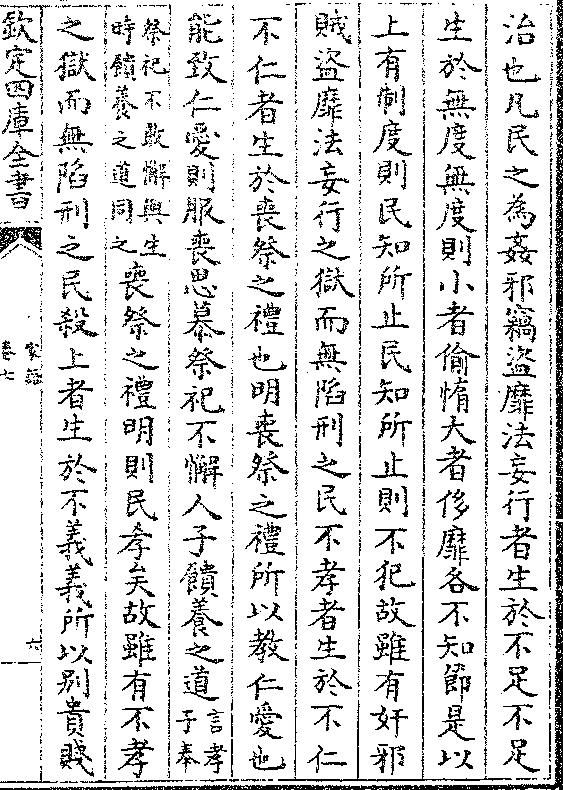 治也凡民之為姦邪竊盜靡法妄行者生於不足不足
生於無度無度則小者偷惰大者侈靡各不知節是以
上有制度則民知所止民知所止則不犯故雖有奸邪
賊盜靡法妄行之獄而無陷刑之民不孝者生於不仁
不仁者生於喪祭之禮也明喪祭之禮所以教仁愛也
能致仁愛則服喪思慕祭祀不懈人子饋養之道言孝子奉
祭祀不敢懈與生時饋養之道同之喪祭之禮明則民孝矣故雖有不孝
之獄而無陷刑之民殺上者生於不義義所以別貴賤
欽定四庫全書
家語
卷七
六